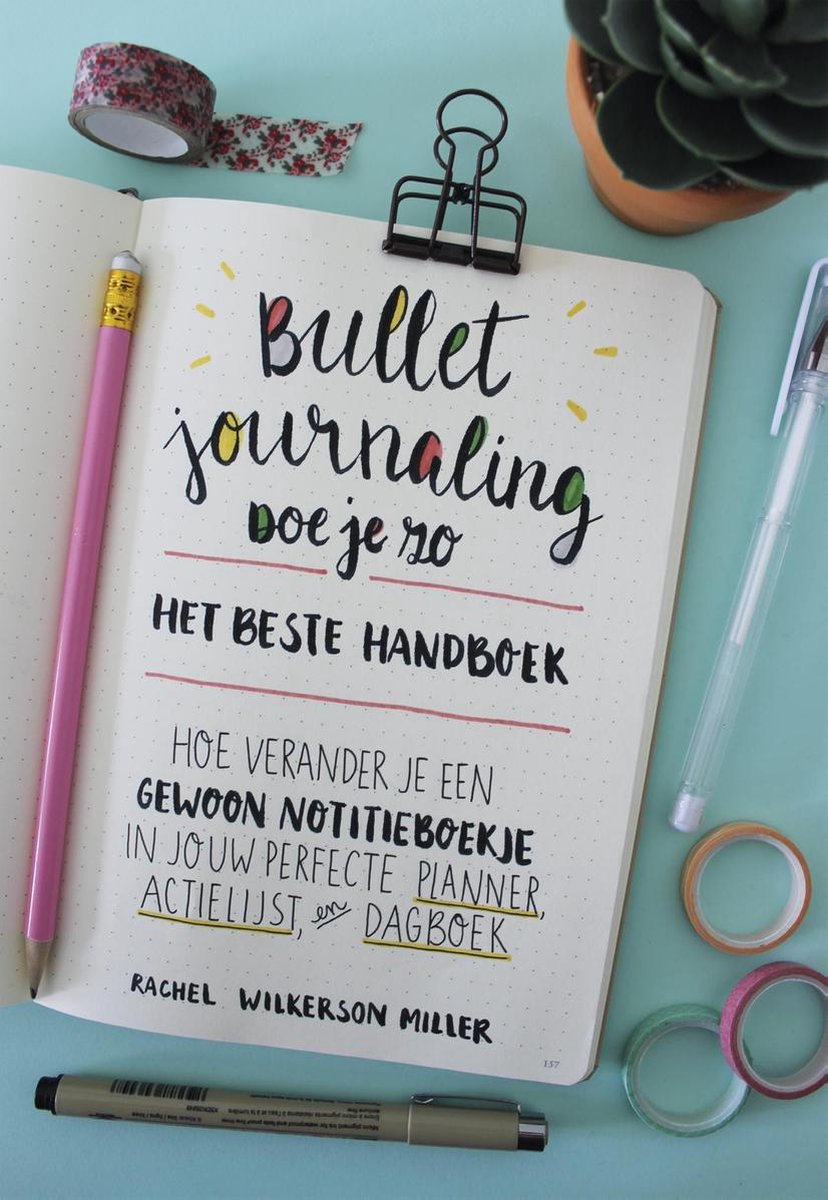 Bullet
journaling
Doe je zo
HET BESTE HANDBOEK
HOE VERANDER JE EEN
GEWOON NOTITIEBOEKJE
IN JOUW PERFECTE PLANNER,
ACTIELIJST, en DAGBOEK
RACHEL WILKERSON MILLER
137